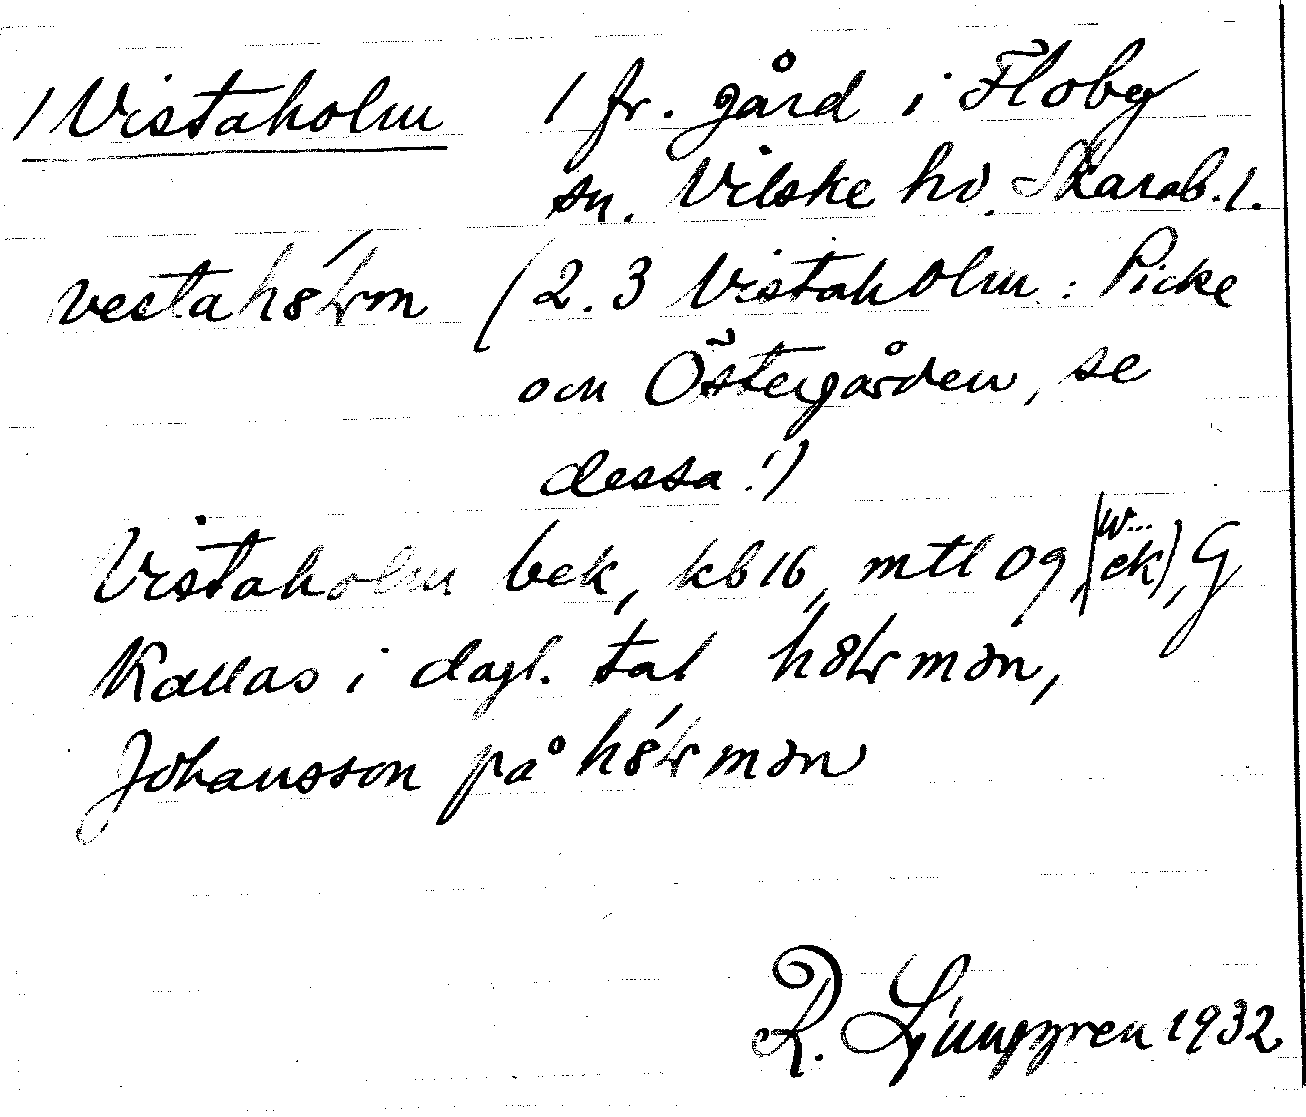 1 Vistaholm 1 fr. gård i Floby
sn. Vilske hd. Skarab. l.
vestahólm (2.3 Vistaholm: Picke
om Östergården, se
dessa!)
Vistaholm bek, kb 16, mtl 09 (W... ek), G
Kallas i dagl. tal hólmən,
Johansson på hólmən
R. Ljunggren 1932